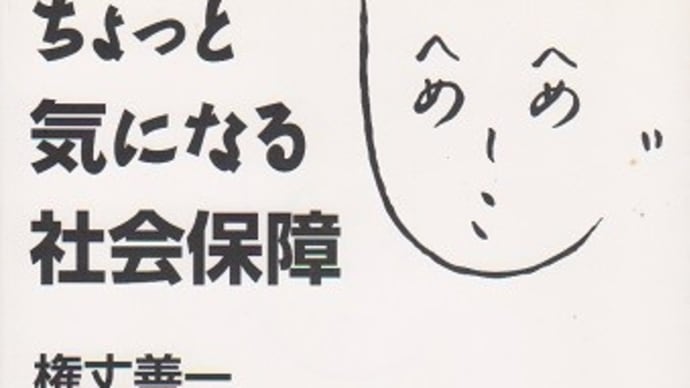 ちょっと
気になる
社会保障
権丈善一
へ へ
め め